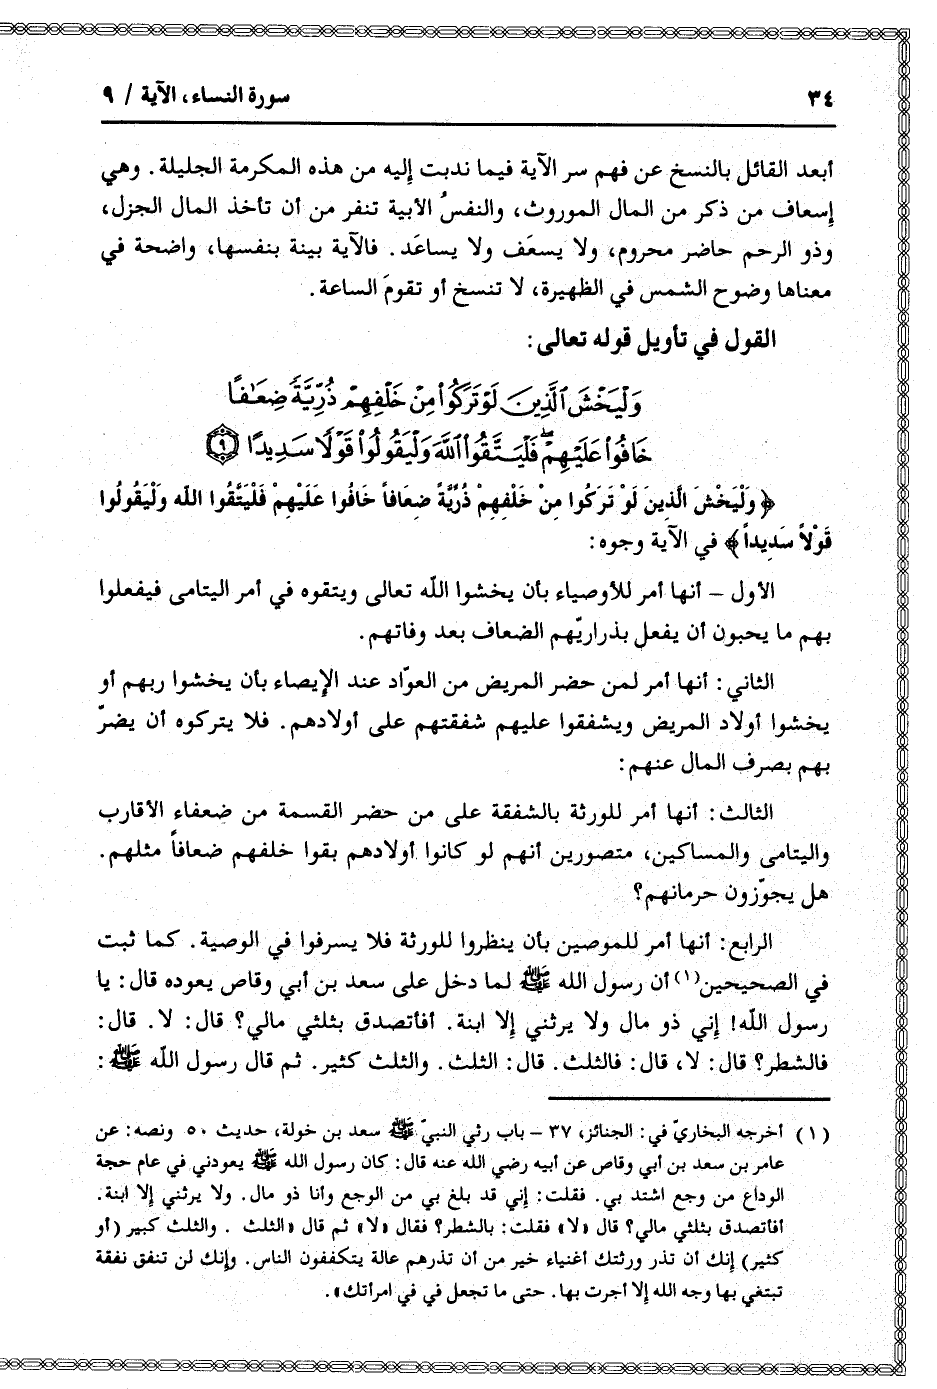 ٣٤
سورة النساء، الآية / ٩
أبعد القائل بالنسخ عن فهم سر الآية فيما ندبت إليه من هذه المكرمة الجليلة. وهي
إسعاف من ذكر من المال الموروث، والنفسُ الأبية تنفر من أن تأخذ المال الجزل،
وذو الرحم حاضر محروم، ولا يسعَف ولا يساعَد. فالآية بينة بنفسها، واضحة في
معناها وضوح الشمس في الظهيرة، لا تنسخ أو تقومَ الساعة.
القول في تأويل قوله تعالى:
وَلْيَخْشَ ٱلَّذِينَ لَوْ تَرَكُوا۟ مِنْ خَلْفِهِمْ ذُرِّيَّةً ضِعَٰفًا
خَافُوا۟ عَلَيْهِمْ ۖ فَلْيَتَّقُوا۟ ٱللَّهَ وَلْيَقُولُوا۟ قَوْلًا سَدِيدًا ۝٩
﴿وَلْيَخْشَ الَّذِينَ لَوْ تَرَكُوا مِنْ خَلْفِهِمْ ذُرِّيَّةً ضِعَافاً خَافُوا عَلَيْهِمْ فَلْيَتَّقُوا اللّه وَلْيَقُولُوا
قَوْلاً سَدِيداً﴾ في الآية وجوه:
الأول – أنها أمر للأوصياء بأن يخشوا اللّه تعالى ويتقوه في أمر اليتامى فيفعلوا
بهم ما يحبون أن يفعل بذراريّهم الضعاف بعد وفاتهم.
الثاني: أنها أمر لمن حضر المريض من العوّاد عند الإيصاء بأن يخشوا ربهم أو
يخشوا أولاد المريض ويشفقوا عليهم شفقتهم على أولادهم. فلا يتركوه أن يضرّ
بهم بصرف المال عنهم:
الثالث: أنها أمر للورثة بالشفقة على من حضر القسمة من ضعفاء الأقارب
واليتامى والمساكين، متصورين أنهم لو كانوا أولادهم بقوا خلفهم ضعافاً مثلهم.
هل يجوّزون حرمانهم؟
الرابع: أنها أمر للموصين بأن ينظروا للورثة فلا يسرفوا في الوصية. كما ثبت
في الصحيحين(١) أن رسول الله ﷺ لما دخل على سعد بن أبي وقاص يعوده قال: يا
رسول اللّه! إني ذو مال ولا يرثني إلا ابنة. أفأتصدق بثلثي مالي؟ قال: لا. قال:
فالشطر؟ قال: لا، قال: فالثلث. قال: الثلث. والثلث كثير. ثم قال رسول اللّه ﷺ:
(١) أخرجه البخاريّ في: الجنائز، ٣٧ – باب رثي النبيّ ﷺ سعد بن خولة، حديث ٥٠ ونصه: عن
عامر بن سعد بن أبي وقاص عن أبيه رضي الله عنه قال: كان رسول الله ﷺ يعودني في عام حجة
الوداع من وجع اشتد بي. فقلت: إني قد بلغ بي من الوجع وأنا ذو مال. ولا يرثني إلا ابنة.
أفأتصدق بثلثي مالي؟ قال «لا» فقلت: بالشطر؟ فقال «لا» ثم قال «الثلث . والثلث كبير (أو
كثير) إنك أن تذر ورثتك أغنياء خير من أن تذرهم عالة يتكففون الناس. وإنك لن تنفق نفقة
تبتغي بها وجه الله إلا أجرت بها. حتى ما تجعل في في امرأتك».